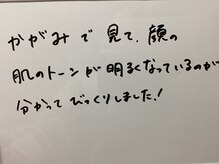 かがみで見て、顔の
肌のトーンが明るくなっているのが
分かってびっくりしました!